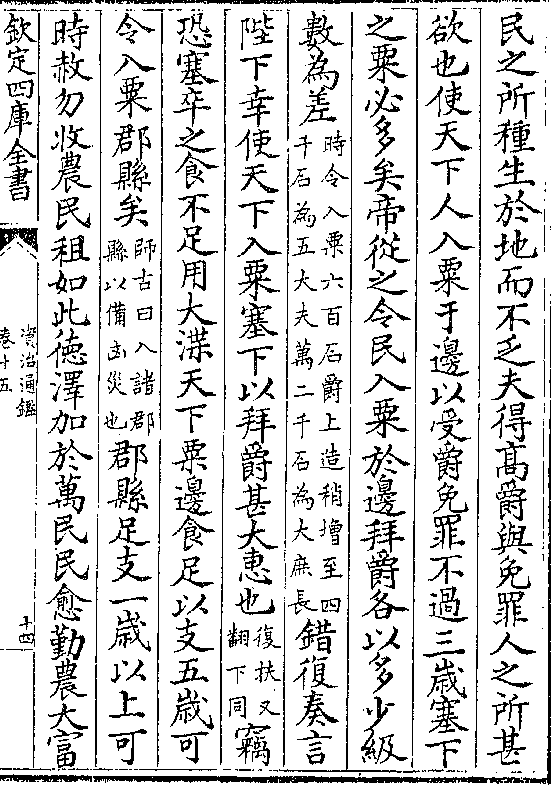 民之所種生於地而不乏夫得髙爵與免罪人之所甚
欲也使天下人入粟于邊以受爵免罪不過三歳塞下
之粟必多矣帝從之令民入粟於邊拜爵各以多少級
數為差時令入粟六百石爵上造稍増至四
千石為五大夫萬二千石為大庶長錯復奏言
陛下幸使天下入粟塞下以拜爵甚大恵也復扶又
翻下同竊
恐塞卒之食不足用大渫天下粟邊食足以支五嵗可
令入粟郡縣矣師古曰入諸郡
縣以備凶災也郡縣足支一嵗以上可
時赦勿收農民租如此徳澤加於萬民民愈勤農大富
欽定四庫全書
資治通鑑
卷十五
十四